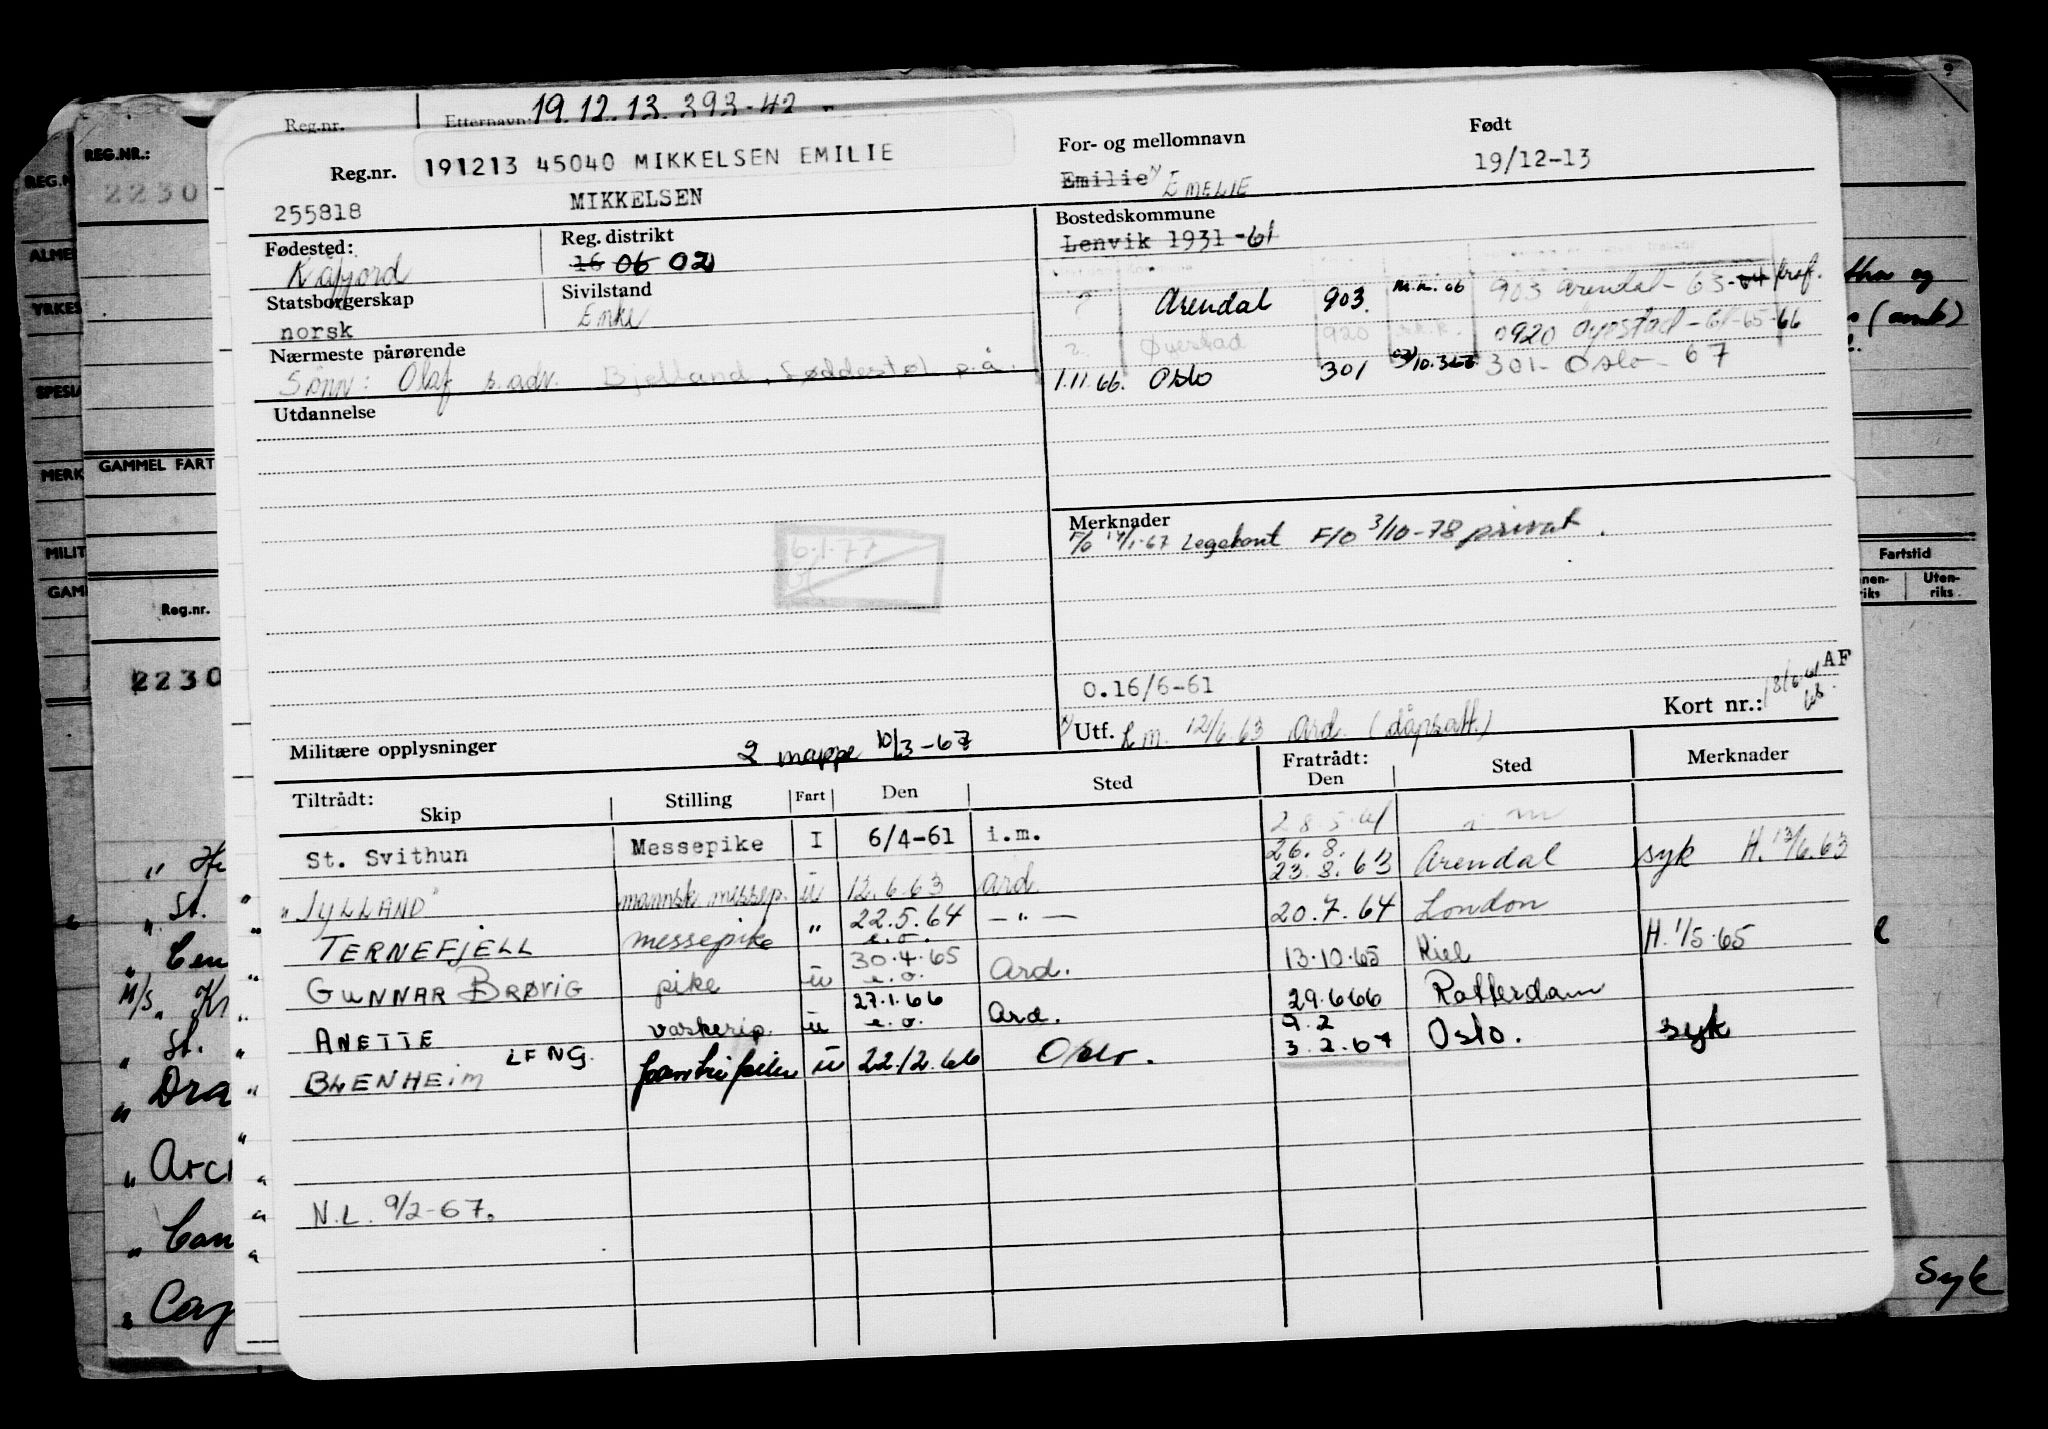 Reg.nr. Etternavn: 19.12.13. 393-42
Reg.nr. 191213 45040 MIKKELSEN EMILIE
For- og mellomnavn
Født
255818 MIKKELSEN
Emilie EMELIE
19/12-13
Fødested:
Kåfjord
Reg. distrikt
16 06 02
Bostedskommune
Lenvik 1931 -61
Statsborgerskap
norsk
Sivilstand
Enke
Arendal 903. 903 Arendal - 63-64
Øyestad 920 0920 Øyestad - 65-66
1.11.66. Oslo 301 301- Oslo - 67
Nærmeste pårørende
Sønn: Olaf s. adr. Bjelland, Søddestøl p.å.
Utdannelse
6.1.77
Merknader
F/O 14/1-67 Legekont F/O 3/10-78 privat.
0.16/6-61
AF
Kort nr.:
Utf. 12/6 63 Ard. (dåpsatt.)
Militære opplysninger
2 mappe 10/3-67
Tiltrådt: Skip Stilling Fart Den Sted Fratrådt: Den Sted Merknader
St. Svithun Messepike I 6/4-61 i.m. 28.5.61 i m
"JYLLAND" mannsk messep. u 12.6.63 Ard. 26.8. 23.8.63 Arendal syk H. 13/6.63
TERNEFJELL messepike " 22.5.64 e.o. — " — 20.7.64 London
GUNNAR BRØVIG pike u 30.4.65 e.o. Ard. 13.10.65 Kiel H. 1/5.65
ANETTE vaskerip. u 27.1.66 e.o. Ard. 29.6.66 Rotterdam
BLENHEIM LFNG. u 22.12.66 Oslo. 9.2 3.2.67 Oslo. syk
N.L. 9/2-67.
REG.NR.:
2230
GAMMEL FART
Reg.nr.
2230
Fartstid
Uten-riks
" St.
M/S.
" St.
Syk